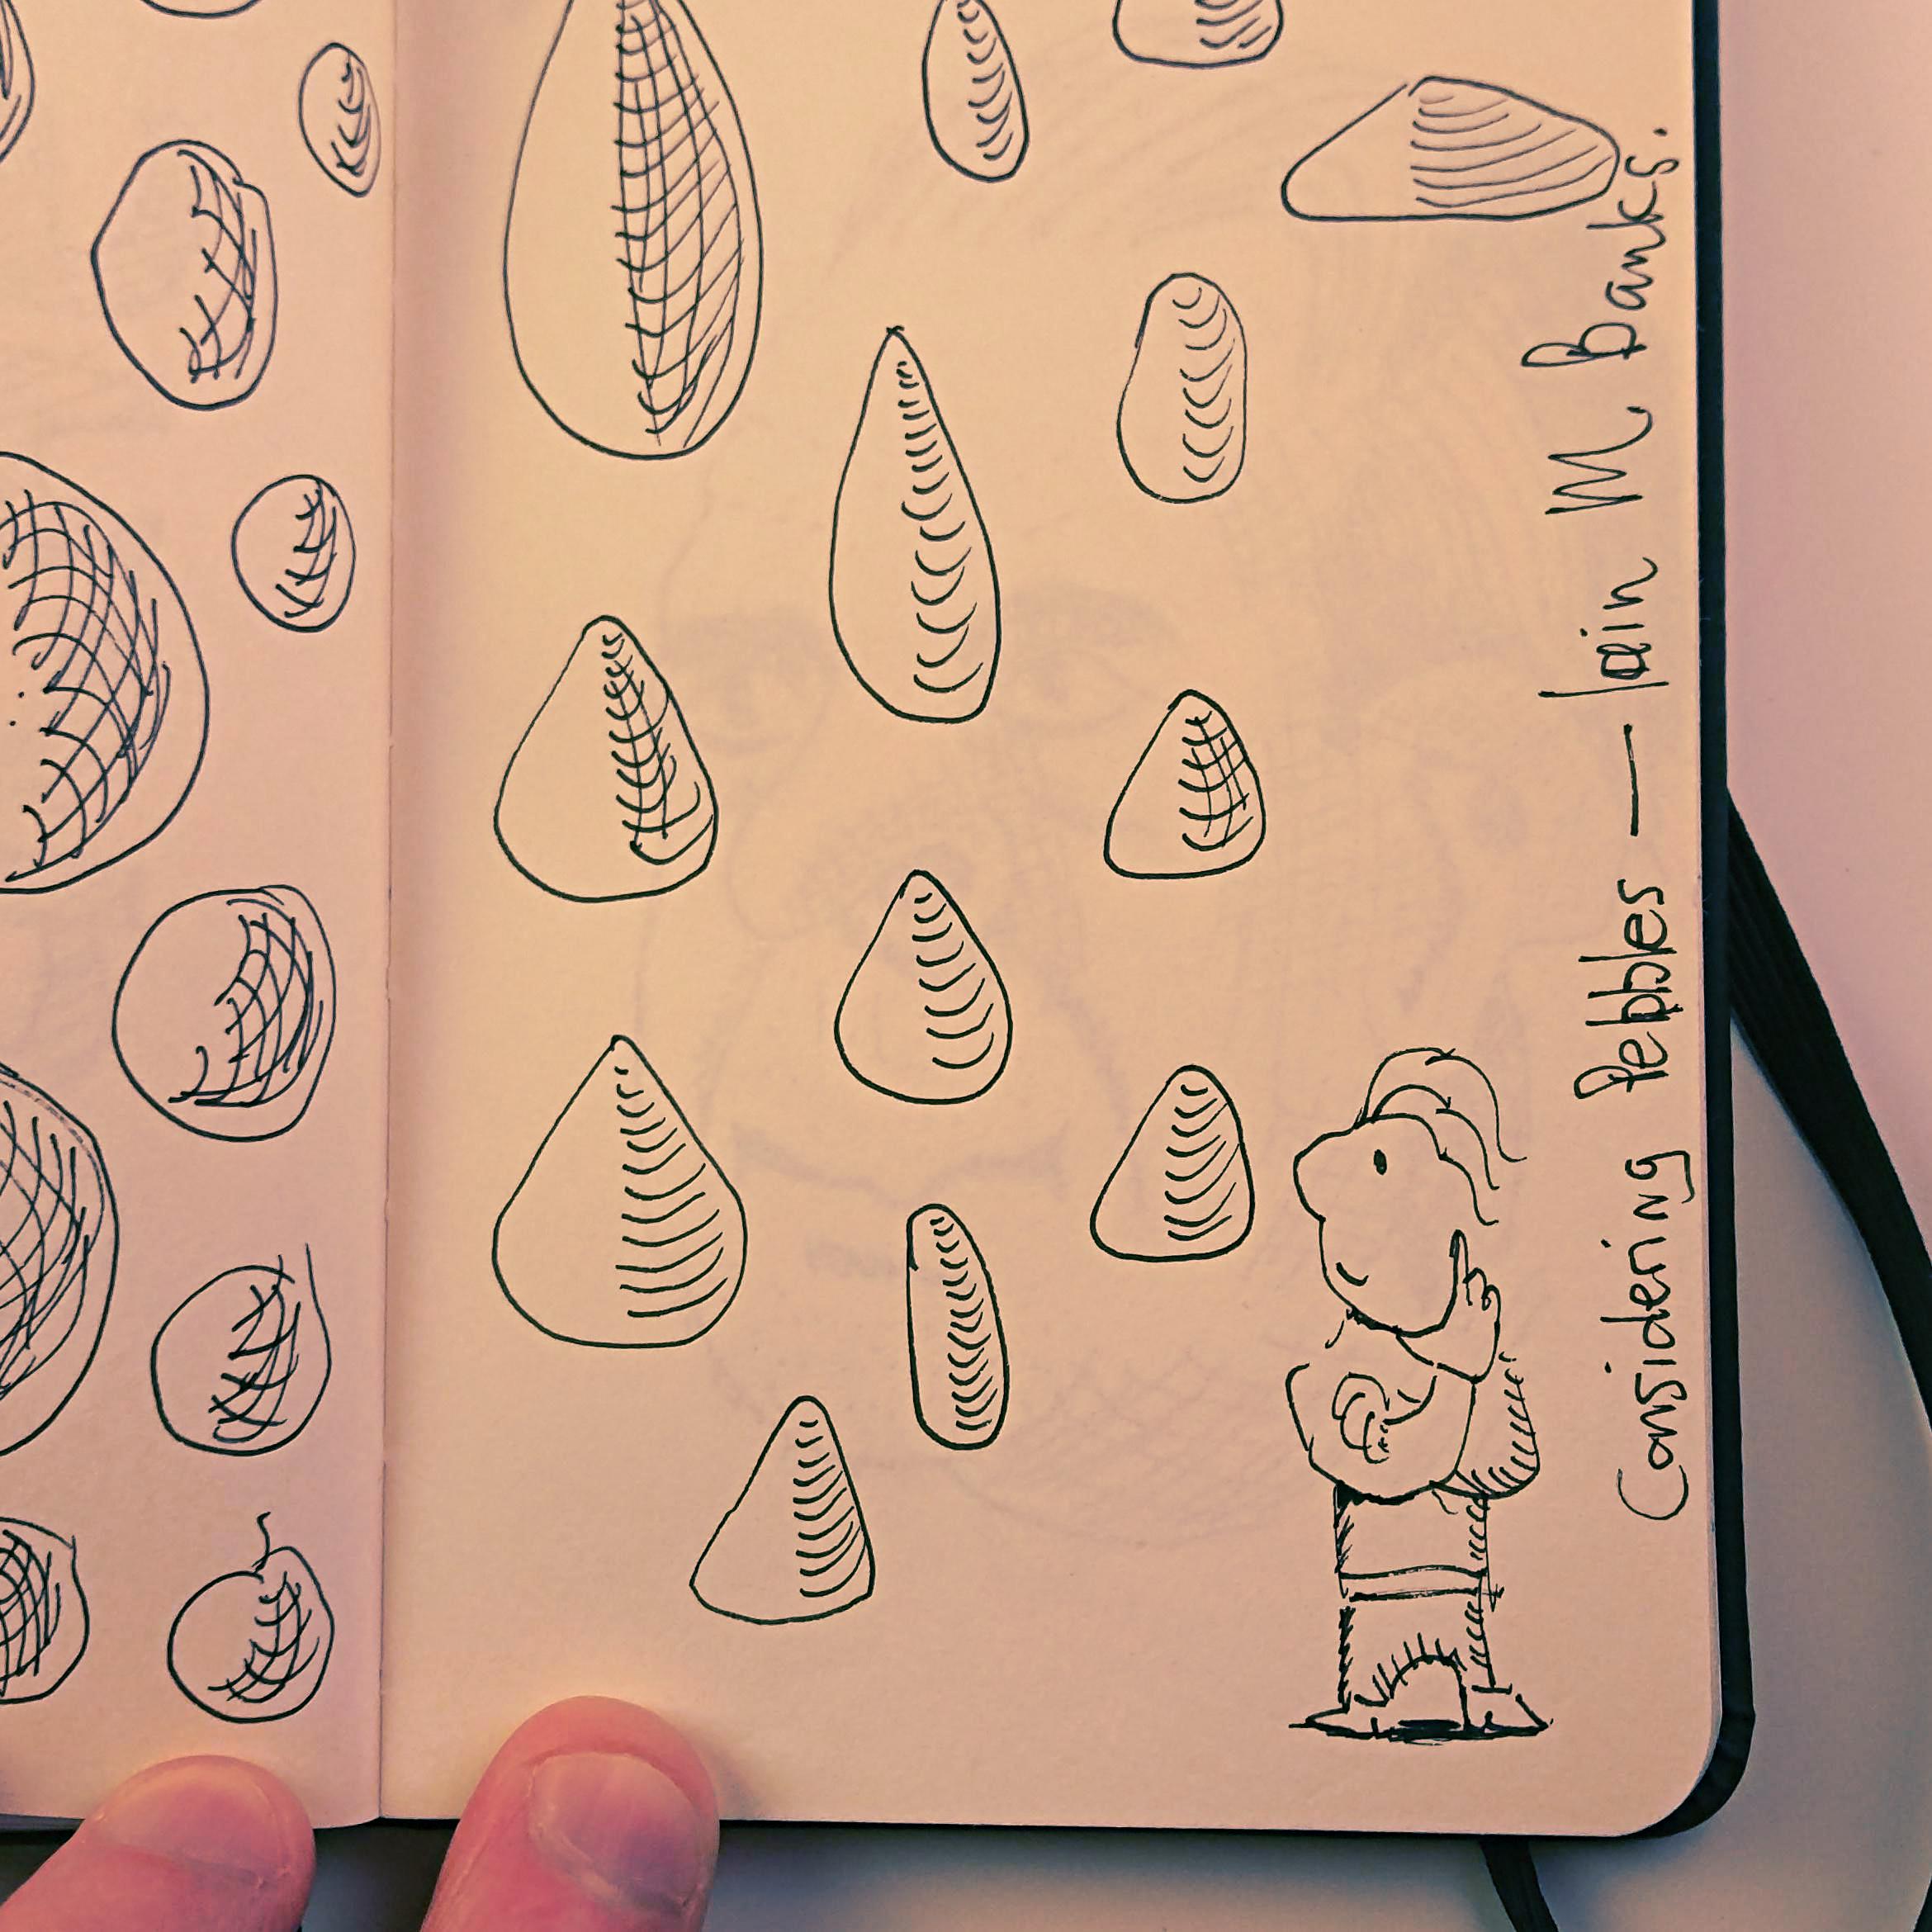 Considering Pebbles — Iain M Banks.